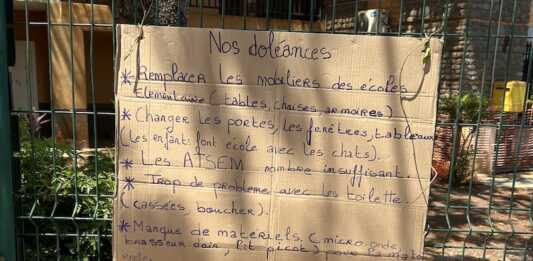 Nos doléances
* Remplacer les mobiliers des écoles
Elementaire (tables, chaises armoires)
* Changer les portes, les fenêtres, tableaux
(les enfants font école avec les chats).
* Les ATSEM nombre insuffisant.
* Trop de probleme avec les toilette.
(cassées, boucher).
* Manque de materiels. (micro-onde,
brasseur dair, lit picot) pour la